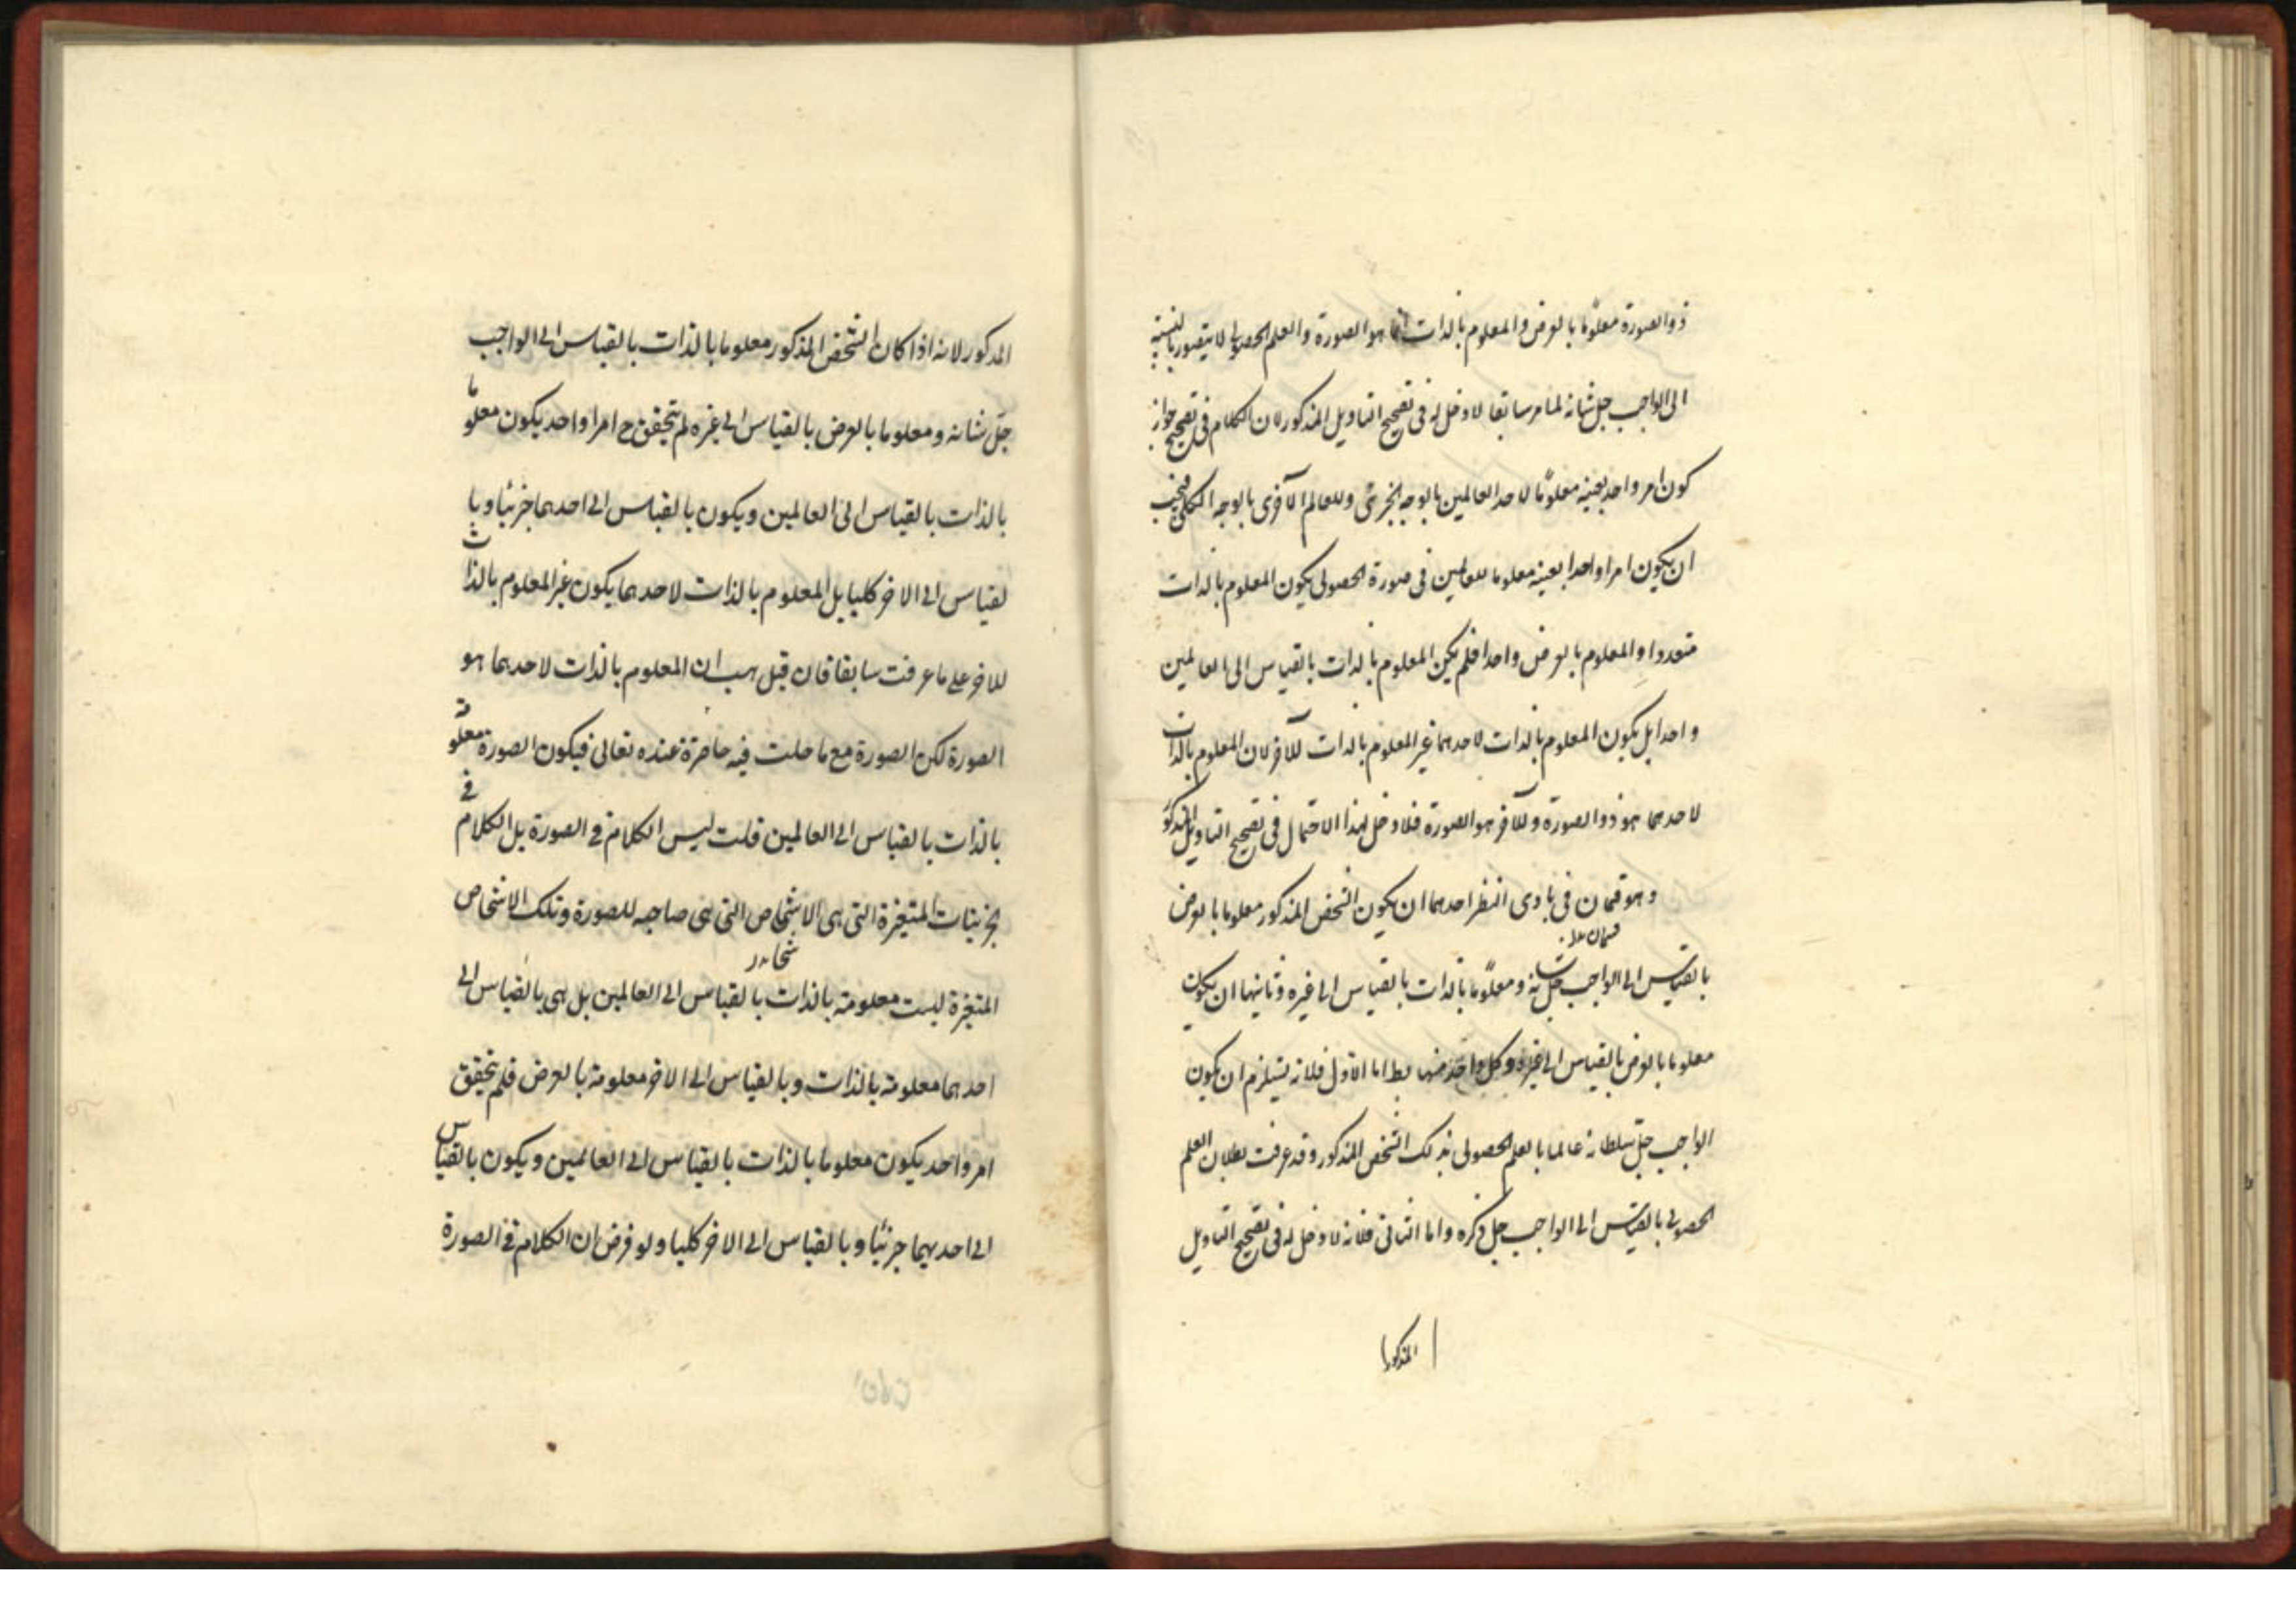 ذو الصورة معلومًا بالعرض والمعلوم بالذات انما هو الصورة والعلم الحصولى لا يتصور بالنسبة
الى الواجب جل شانه لما مر سابقا لا دخل له فى تصحيح التاويل المذكور لان الكلام فى تصحيح جواز
كون امر واحد بعينه معلومًا لاحد العالمين بالوجه الجزئى وللعالم الآخرى بالوجه الكلى فيجب
ان يكون امرا واحدا بعينه معلوما للعالمين فى صورة الحصولى يكون المعلوم بالذات
متعددا والمعلوم بالعرض واحدا فلم يكن المعلوم بالذات بالقياس الى العالمين
واحدا بل يكون المعلوم بالذات لاحدهما غير المعلوم بالذات للآخر لان المعلوم بالذات
لاحدهما هو ذو الصورة وللآخر هو الصورة فلا دخل لهذا الاحتمال فى تصحيح التاويل المذكور
وهو قسمان فى بادى النظر احدهما ان يكون الشخص المذكور معلوما بالعرض
بالقياس الى الواجب جل شانه ومعلومًا بالذات بالقياس الى غيره وثانيهما ان يكون
معلوما بالعرض بالقياس الى غيره وكل واحد منهما بط اما الاول فلانه يستلزم ان يكون
الواجب جل سلطانه عالما بالعلم الحصولى بذلك الشخص المذكور وقد عرفت بطلان العلم
الحصولى بالقياس الى الواجب جل ذكره واما الثانى فلانه لا دخل له فى تصحيح التاويل
المذكور
المذكور لانه اذا كان الشخص المذكور معلوما بالذات بالقياس الى الواجب
جل شانه ومعلوما بالعرض بالقياس الى غيره لم يتحقق ح امرا واحد يكون معلوما
بالذات بالقياس الى العالمين ويكون بالقياس الى احدهما جزئيا وبا
لقياس الى الاخر كليا بل المعلوم بالذات لاحدهما يكون غير المعلوم بالذات
للاخر على ما عرفت سابقا فان قيل هب ان المعلوم بالذات لاحدهما هو
الصورة لكن الصورة مع ما حلت فيه حاضرة عنده تعالى فيكون الصورة معلومة
بالذات بالقياس الى العالمين قلت ليس الكلام فى الصورة بل الكلام فى
الجزئيات المتغيرة التى هى الاشخاص التى هى صاحبه للصورة وتلك الاشخاص
المتغيرة ليست معلومة بالذات بالقياس الى العالمين بل هى بالقياس الى
احدهما معلومة بالذات وبالقياس الى الاخر معلومة بالعرض فلم يتحقق
امر واحد يكون معلوما بالذات بالقياس الى العالمين ويكون بالقياس
الى احديهما جزئيا وبالقياس الى الاخر كليا ولو فرض ان الكلام فى الصورة